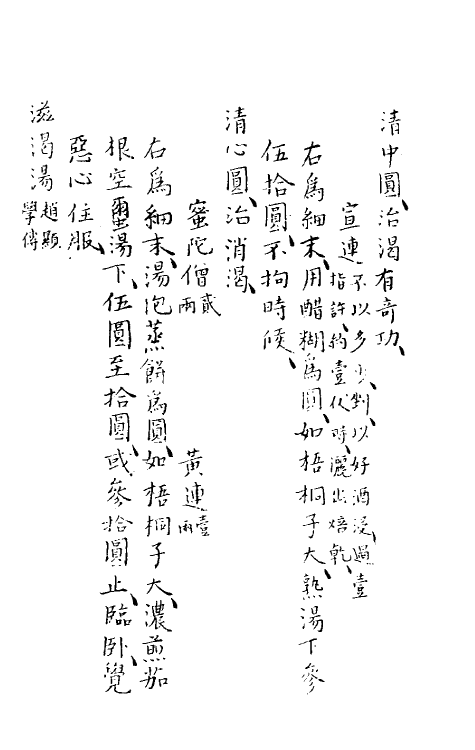 清中圓、治渴有奇功、
宣連不以多少、剉、以好酒浸過壹
指許、約壹伏時、灑出焙乾、
右為細末、用醋糊為圓、如梧桐子大、熟湯下參
伍拾圓、不拘時候、
清心圓、治消渴、
蜜陀僧貳兩 黃連壹兩
右為細末、湯泡蒸餅為圓、如梧桐子大、濃煎茄
根空蠒湯下、伍圓至拾圓、或參拾圓止、臨卧、覺
惡心住服、
滋渴湯趙顯學傳